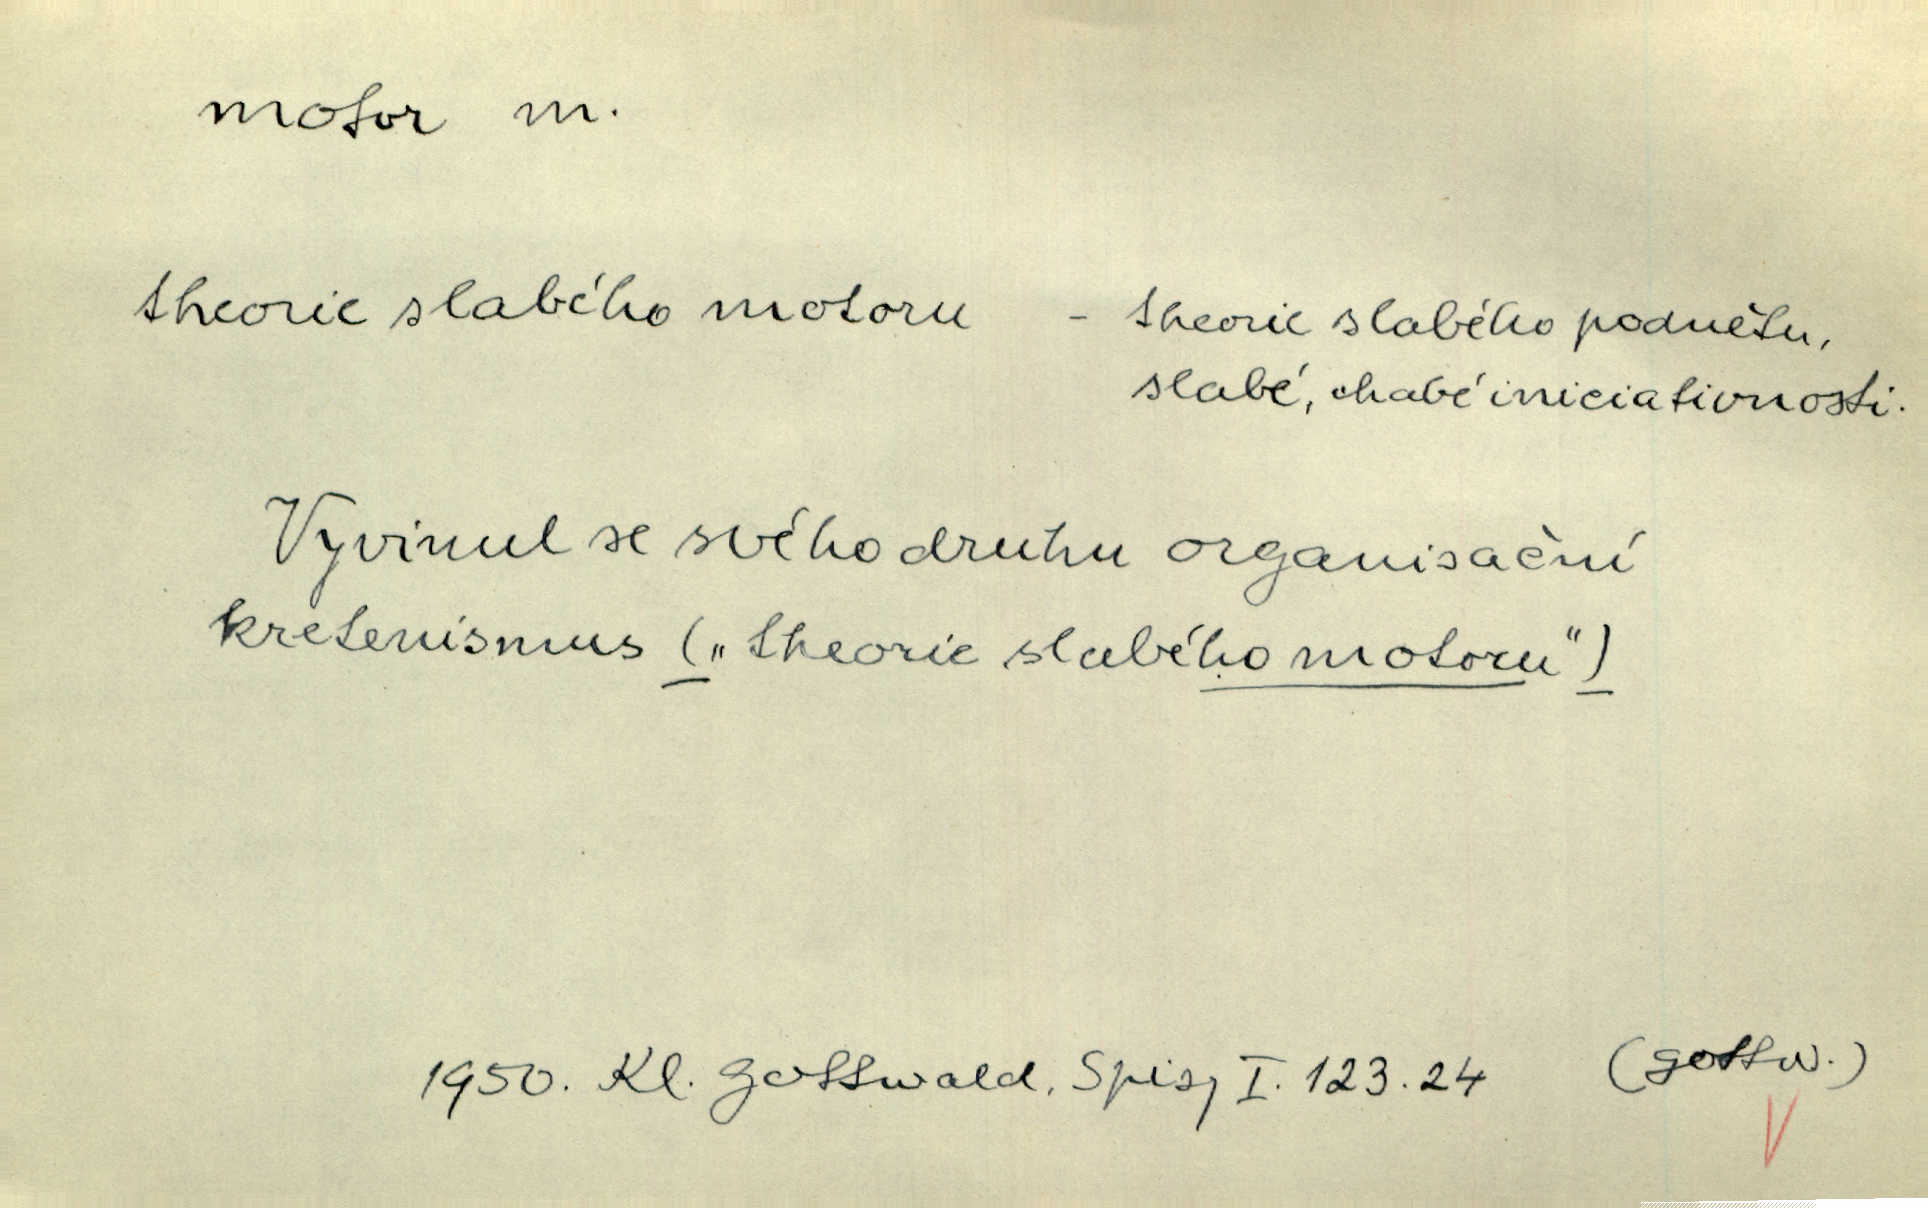 motor m.
theorie slabého motoru - theorie slabého podnětu,
slabé, chabé iniciativnosti.
Vyvinul se svého druhu organisační
kretenismus („theorie slabého motoru“)
1950. Kl. Gottwald, Spisy I. 123.24 (Gottw.)
V